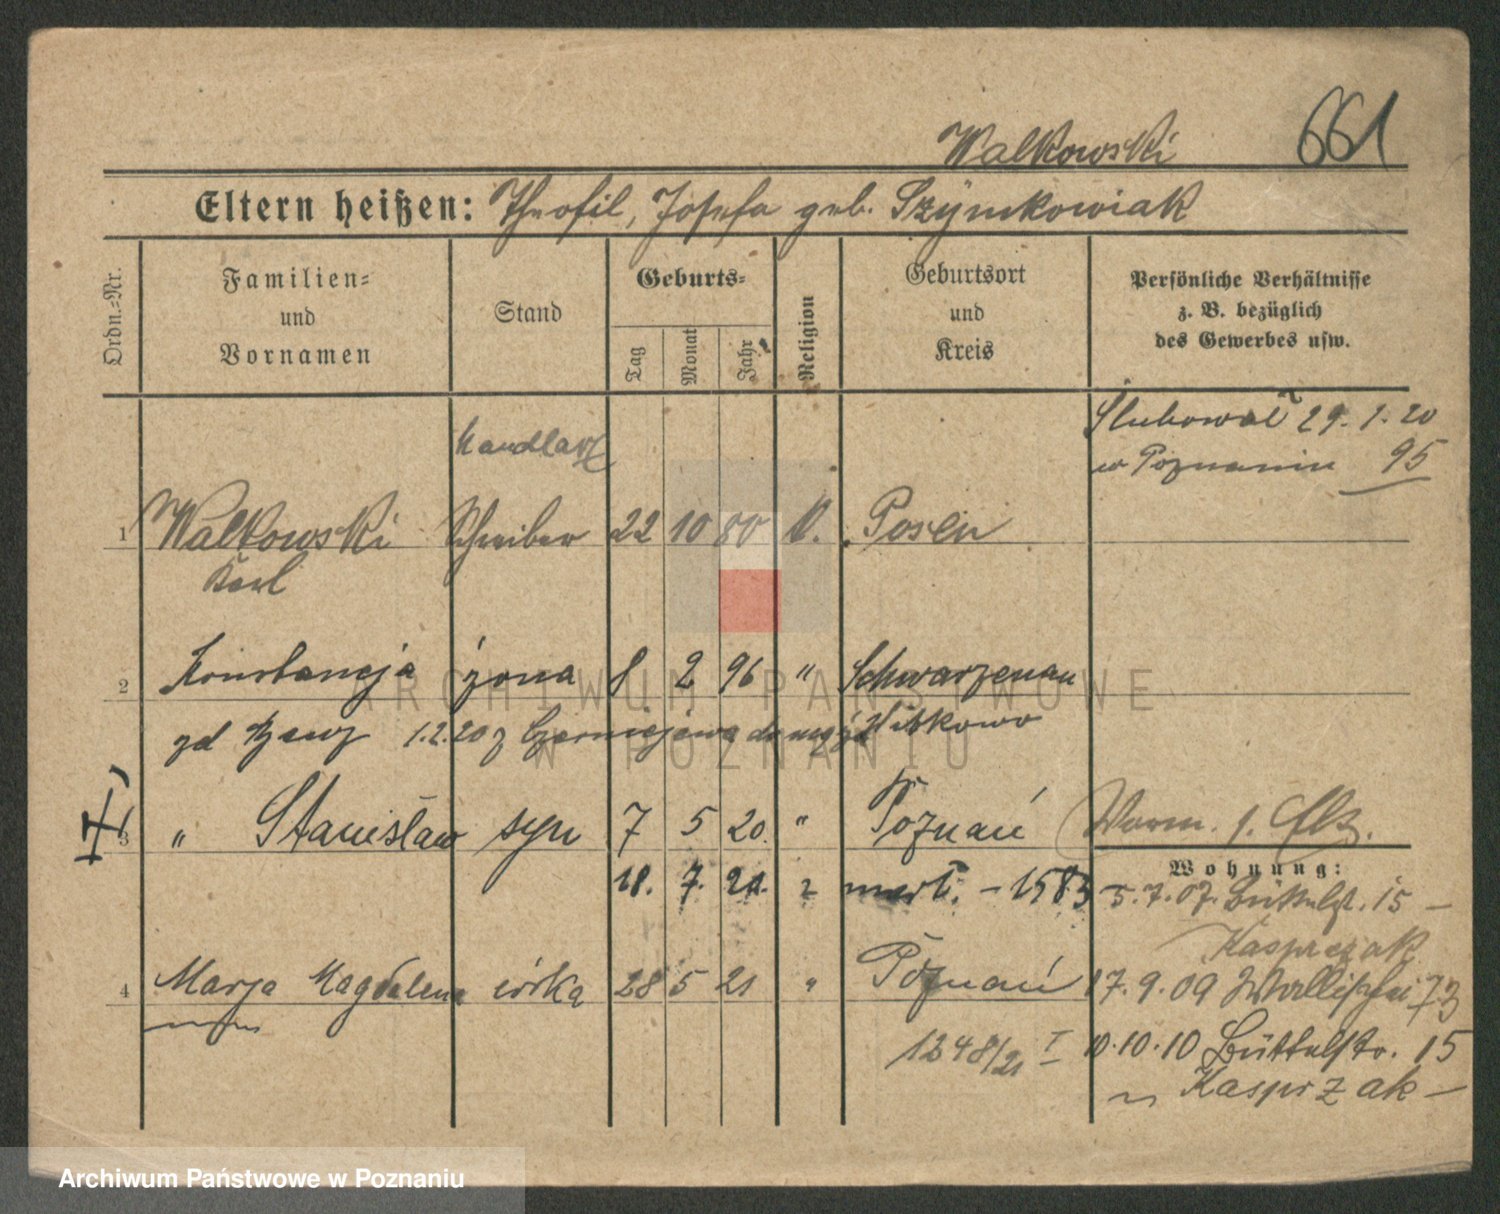 Walkowski 661
Eltern heißen: Theofil, Josefa geb. Szymkowiak
Ordn.-Nr.
Familien- und Vornamen
Stand
Geburts-
Tag Monat Jahr
Religion
Geburtsort und Kreis
Persönliche Verhältnisse z. B. bezüglich des Gewerbes usw.
Ślubował 29. 1. 20
w Poznaniu 95
handlarz
1 Walkowski Schreiber 22 10 80 K. Posen
Karl
2 Konstancja żona 8 2 96 " Schwarzenau
zd 1.2.20 z Czerniejewa do męża Witkowo
3 " Stanisław syn 7 5 20. " Poznań
18. 7. 21. - 1583
Wohnung:
5.7.07. Büttelst. 15 -
Kasprzak
4 Marja Magdalena córka 28 5 21 " Poznań
17.9.09 Wallischei 73
1248/21 I
10.10.10 Büttelstr. 15
Kasprzak -
ARCHIWUM PAŃSTWOWE
W POZNANIU
Archiwum Państwowe w Poznaniu